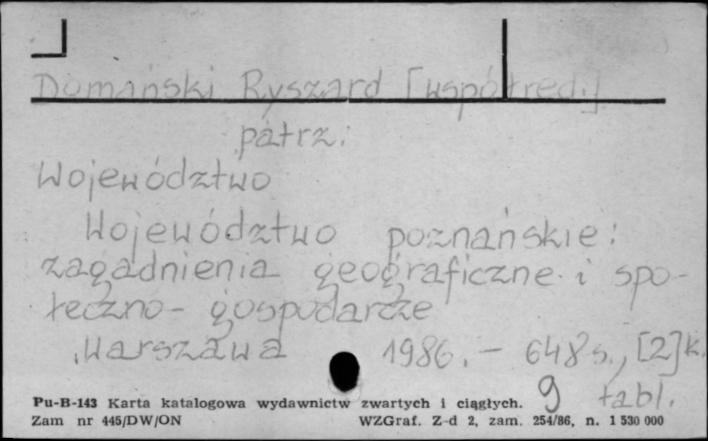 Domański Ryszard [współred.]
patrz:
Województwo
Województwo poznańskie:
zagadnienia geograficzne i spo-
łeczno-gospodarcze
Warszawa 1986.- 648 s., [2] k.
tabl.
9
Pu-B-143 Karta katalogowa wydawnictw zwartych i ciągłych.
Zam nr 445/DW/ON WZGraf. Z-d 2, zam. 254/86, n. 1 530 000